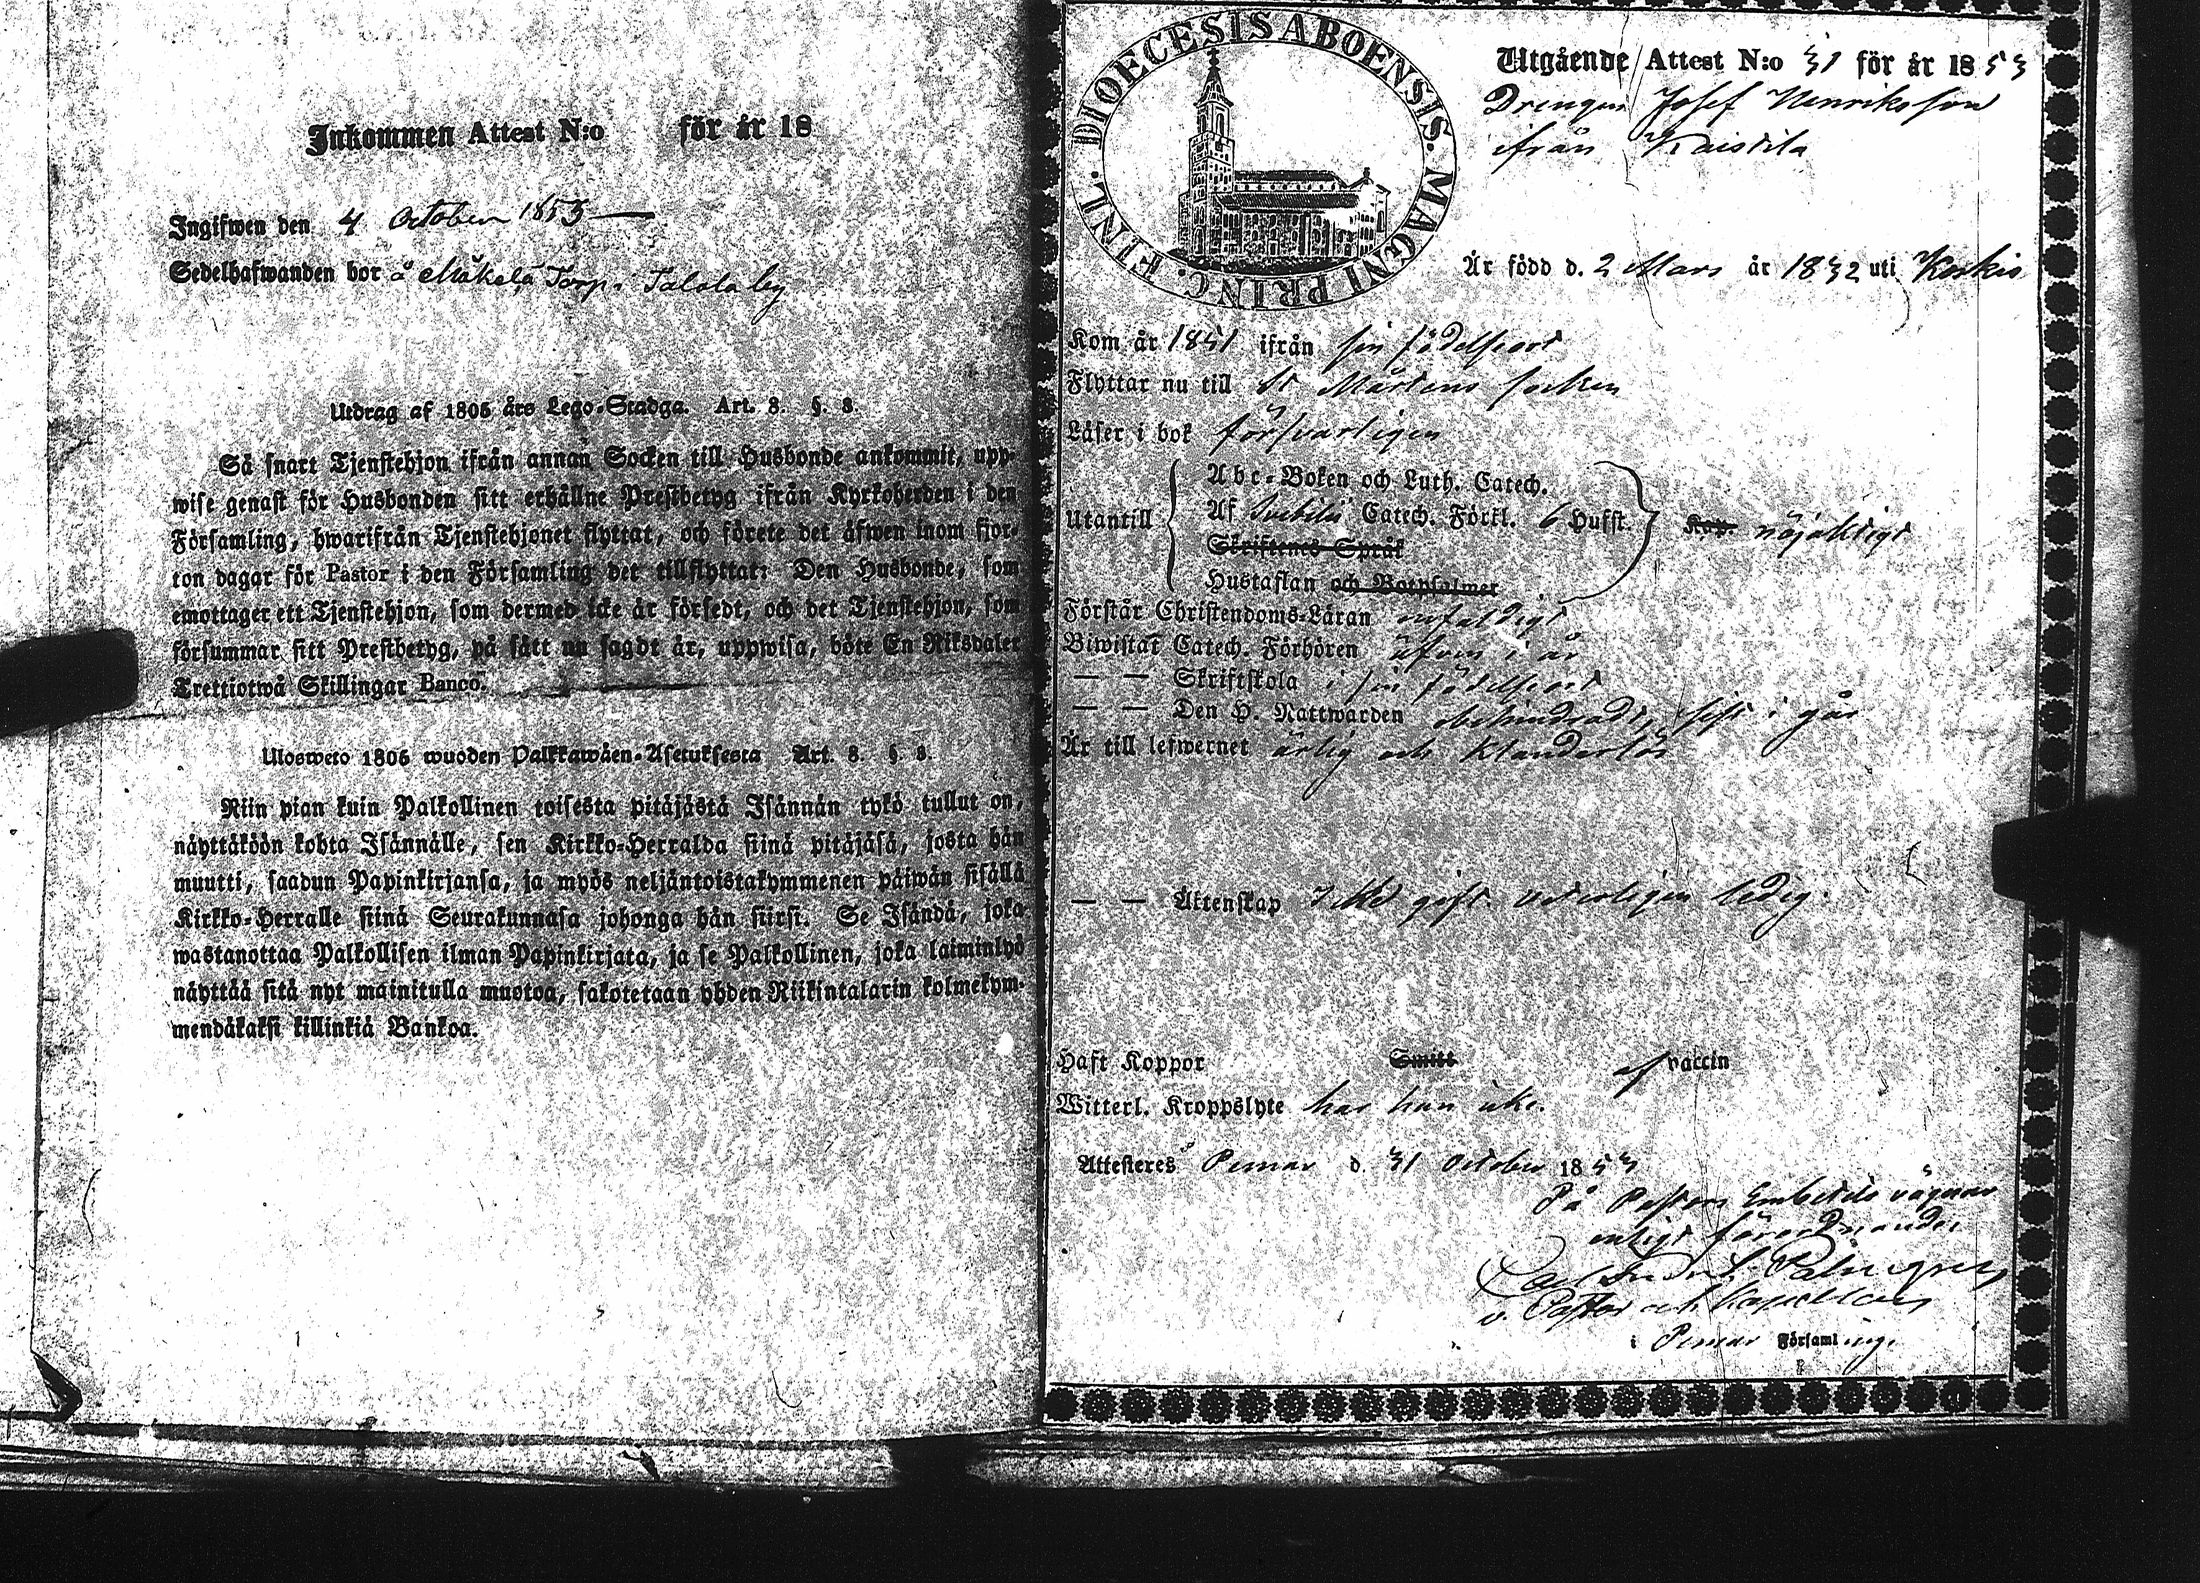 Inkommen Attest N:o för år 18
Ingifwen den 4 October 1853
Sedelhafwanden bor å Mäkelä Torp i Talola by
Utdrag af 1805 års Lego-Stadga. Art. 8. §. 8.
Så snart Tjenstehjon ifrån annan Socken till Husbonde ankommit, upp-
wise genast för Husbonden sitt erhållne Prestbetyg ifrån Kyrkoherden i den
Församling, hwarifrån Tjenstehjonet flyttat, och förete det äfwen inom fjor-
ton dagar för Pastor i den Församling det tillflyttat: Den Husbonde, som
emottager ett Tjenstehjon, som dermed icke är försedt, och det Tjenstehjon, som
försummar sitt Prestbetyg, på sätt nu sagdt är, uppwisa, böte En Riksdaler
Trettiotwå Skillingar Banco.
Ulosweto 1805 wuoden Palkkawäen-Asetuksesta Art. 8. §. 8.
Niin pian kuin Palkollinen toisesta pitäjästä Isännän tykö tullut on,
näyttäköön kohta Isännälle, sen Kirkko-Herralda siinä pitäjäsä, josta hän
muutti, saadun Papinkirjansa, ja myös neljäntoistakymmenen päiwän sisällä
Kirkko-Herralle siinä Seurakunnasa johonga hän siirsi. Se Isändä, joka
wastanottaa Palkollisen ilman Papinkirjata, ja se Palkollinen, joka laiminlyö
näyttää sitä nyt mainitulla muotoa, sakotetaan yhden Riikintalarin kolmekym-
mendäkaksi killinkiä Bankoa.
DIOECESIS ABOENSIS. MAGNI PRINC. FINL.
Utgående Attest N:o 31 för år 1853
Drengen Josef Henriksson
ifrån Kaistila
Är född d. 2 Mars år 1832 uti Koskis
Kom år 1851 ifrån sin födelseort
Flyttar nu till St Mårtens socken
Läser i bok försvarligen
Abc-Boken och Luth. Catech.
Utantill Af Svebilii Catech. Förkl. 6 Hufst. Kap. nöjaktigt
Skriftenes Språk
Hustaflan och Botpsalmer
Förstår Christendoms-Läran enfaldigt
Biwistat Catech. Förhören äfven i år
— — Skriftskola i sin födelseort
— — Den H. Nattwarden obehindradt, sist i går
Är till lefwernet ärlig och klanderlös
— — Ättenskap Icke gift. veterligen ledig.
Haft Koppor Smitt af vaccin
Witterl. Kroppslyte har han icke.
Attesteres Pemar d. 31 October 1853
På Pastors Embetets vägnar
enligt förordnande,
Carl Fredrik Palmgren
v. Pastor och Kapellan
i Pemar Församling.